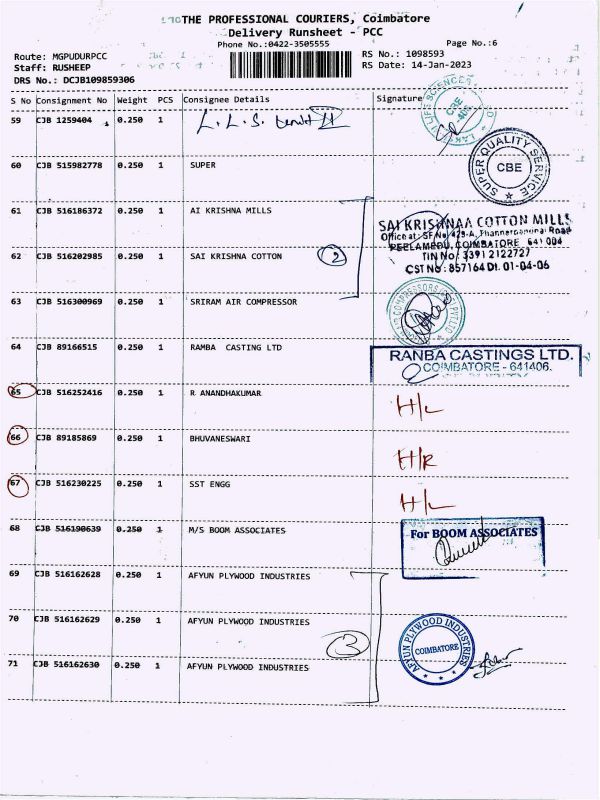 THE PROFESSIONAL COURIERS, Coimbatore
Delivery Runsheet - PCC
Phone No.:0422-3505555
Page No.:6
Route: MGPUDURPCC
RS No.: 1098593
Staff: RUSHEEP
RS Date: 14-Jan-2023
DRS No.: DCJB109859306
S No Consignment No Weight PCS Consignee Details Signature
59 CJB 1259404 0.250 1 L.L.S.
LIFE SCIENCES
CBE
60 CJB 515982778 0.250 1 SUPER
SUPER QUALITY SERVICE
CBE
61 CJB 516186372 0.250 1 AI KRISHNA MILLS
SAI KRISHNAA COTTON MILLS
Office at: SF No 429-A, Road
PEELAMEDU, COIMBATORE 641 004
TIN No: 33912122727
CST No: 857164 Dt. 01-04-06
62 CJB 516202985 0.250 1 SAI KRISHNA COTTON 2
63 CJB 516300969 0.250 1 SRIRAM AIR COMPRESSOR
COMPRESSORS
64 CJB 89166515 0.250 1 RAMBA CASTING LTD
RANBA CASTINGS LTD.
COIMBATORE - 641406.
65 CJB 516252416 0.250 1 R ANANDHAKUMAR H/L
66 CJB 89185869 0.250 1 BHUVANESWARI H/R
67 CJB 516230225 0.250 1 SST ENGG H/L
68 CJB 516190639 0.250 1 M/S BOOM ASSOCIATES
For BOOM ASSOCIATES
69 CJB 516162628 0.250 1 AFYUN PLYWOOD INDUSTRIES
70 CJB 516162629 0.250 1 AFYUN PLYWOOD INDUSTRIES 3
AFYUN PLYWOOD INDUSTRIES
COIMBATORE
71 CJB 516162630 0.250 1 AFYUN PLYWOOD INDUSTRIES